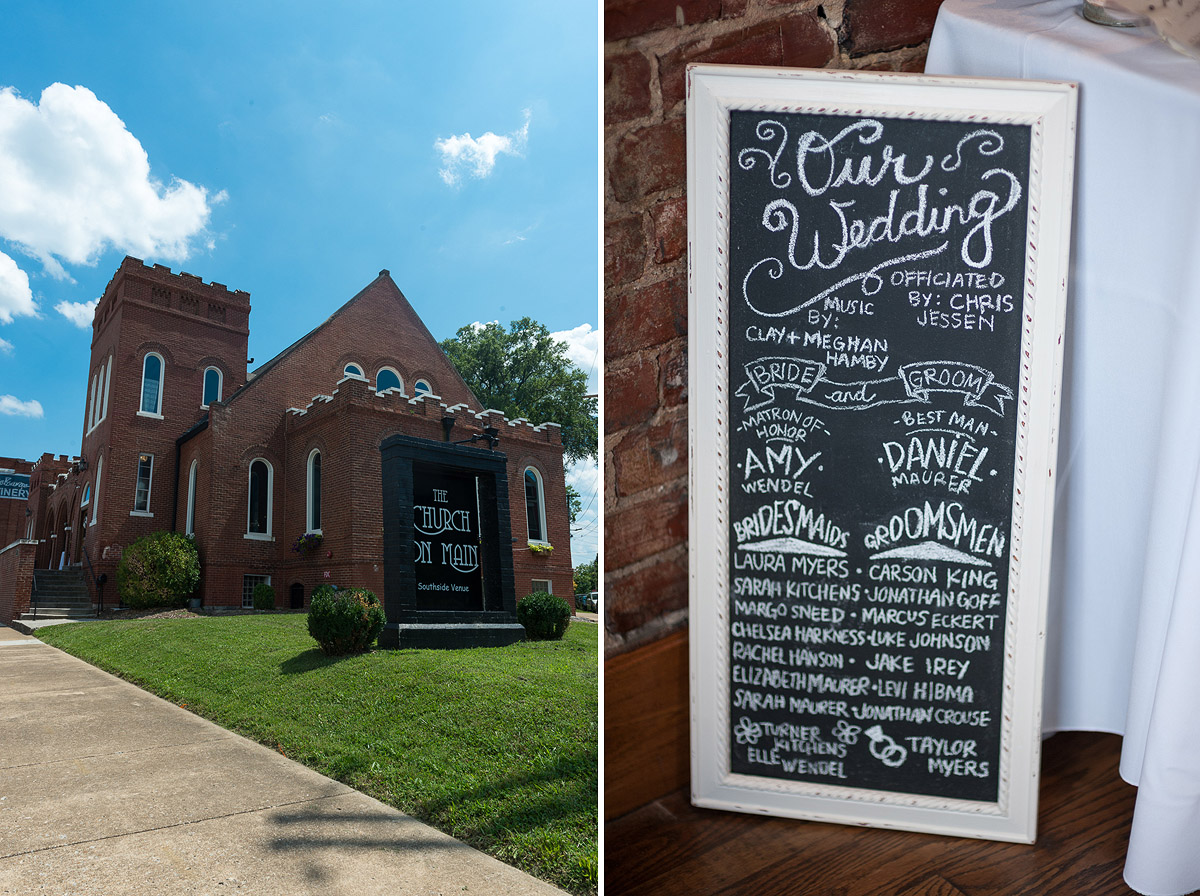 THE
CHURCH
ON MAIN
Southside Venue
Our
Wedding
OFFICIATED
BY: CHRIS
JESSEN
MUSIC
BY:
CLAY + MEGHAN
HAMBY
BRIDE and GROOM
-MATRON OF
HONOR-
·AMY·
WENDEL
-BEST MAN-
·DANIEL·
MAURER
BRIDESMAIDS
GROOMSMEN
LAURA MYERS · CARSON KING
SARAH KITCHENS · JONATHAN GOFF
MARGO SNEED · MARCUS ECKERT
CHELSEA HARKNESS · LUKE JOHNSON
RACHEL HANSON · JAKE IREY
ELIZABETH MAURER · LEVI HIBMA
SARAH MAURER · JONATHAN CROUSE
TURNER
KITCHENS
ELLE
WENDEL
TAYLOR
MYERS